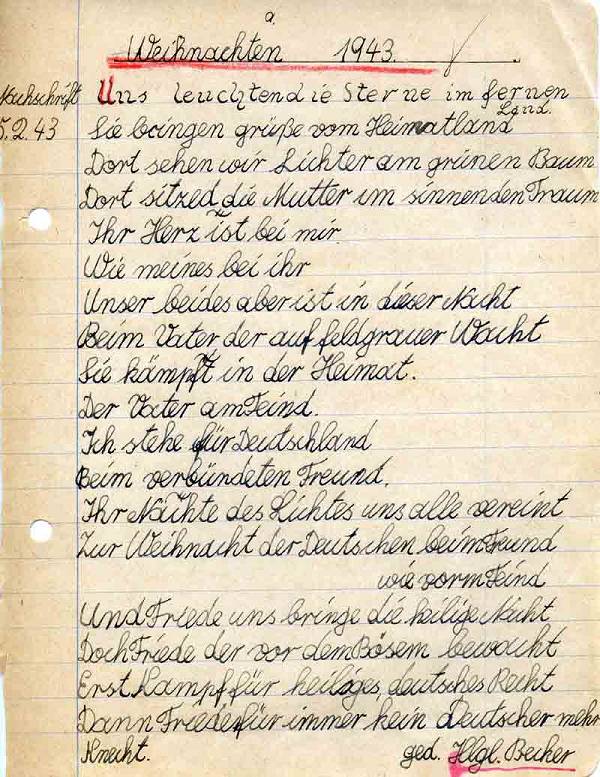 a.
Weihnachten 1943.
Nachschrift Uns leuchtend die Sterne im fernen
Land.
5.2.43 Sie bringen grüße vom Heimatland
Dort sehen wir Lichter am grünen Baum
Dort sitzed die Mutter im sinnenden Traum
Ihr Herz ist bei mir
Wie meines bei ihr
Unser beides aber ist in dieser Nacht
Beim Vater der auf feldgrauer Wacht
Sie kämpft in der Heimat.
Der Vater am Feind.
Ich stehe für Deutschland
Beim verbündeten Freund.
Ihr Nächte des Lichtes uns alle vereint
Zur Weihnacht der Deutschen beim Freund
wie vorm Feind
Und Friede uns bringe die heilige Nacht
Doch Friede der vor dem Bösem bewacht
Erst Kampf für heiliges, deutsches Recht
Dann Friede für immer kein Deutscher mehr
Knecht. ged. Hlgl. Becker